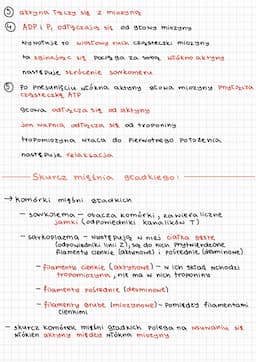 ③ aktyna łączy się z miozyną
④ ADP i Pi odłączają się od głowy miozyny
wywołuje to wiosłowy ruch cząsteczki miozyny
ta zginając się pociąga za sobą włókno aktyny
następuje skrócenie sarkomeru
⑤ Po przesunięciu włókna aktyny głowa miozyny przyłącza cząsteczkę ATP
głowa odłącza się od aktyny
jon wapnia odłącza się od troponiny
tropomiozyna wraca do pierwotnego położenia
następuje relaksacja
Skurcz mięśnia gładkiego:
→ komórki mięśni gładkich
- sarkolema - otacza komórki, zawiera liczne
jamki (odpowiedniki kanalików T)
- sarkoplazma - występują w niej ciałka gęste
(odpowiedniki linii Z), są do nich przytwierdzone
filamenty cienkie (aktynowe) i pośrednie (desminowe)
- filamenty cienkie (aktynowe) - w ich skład wchodzi
tropomiozyna, nie ma w nich troponiny
- filamenty pośrednie (desminowe)
- filamenty grube (miozynowe) - pomiędzy filamentami
cienkimi
- skurcz komórek mięśni gładkich polega na wsuwaniu się
włókien aktyny między włókna miozyny